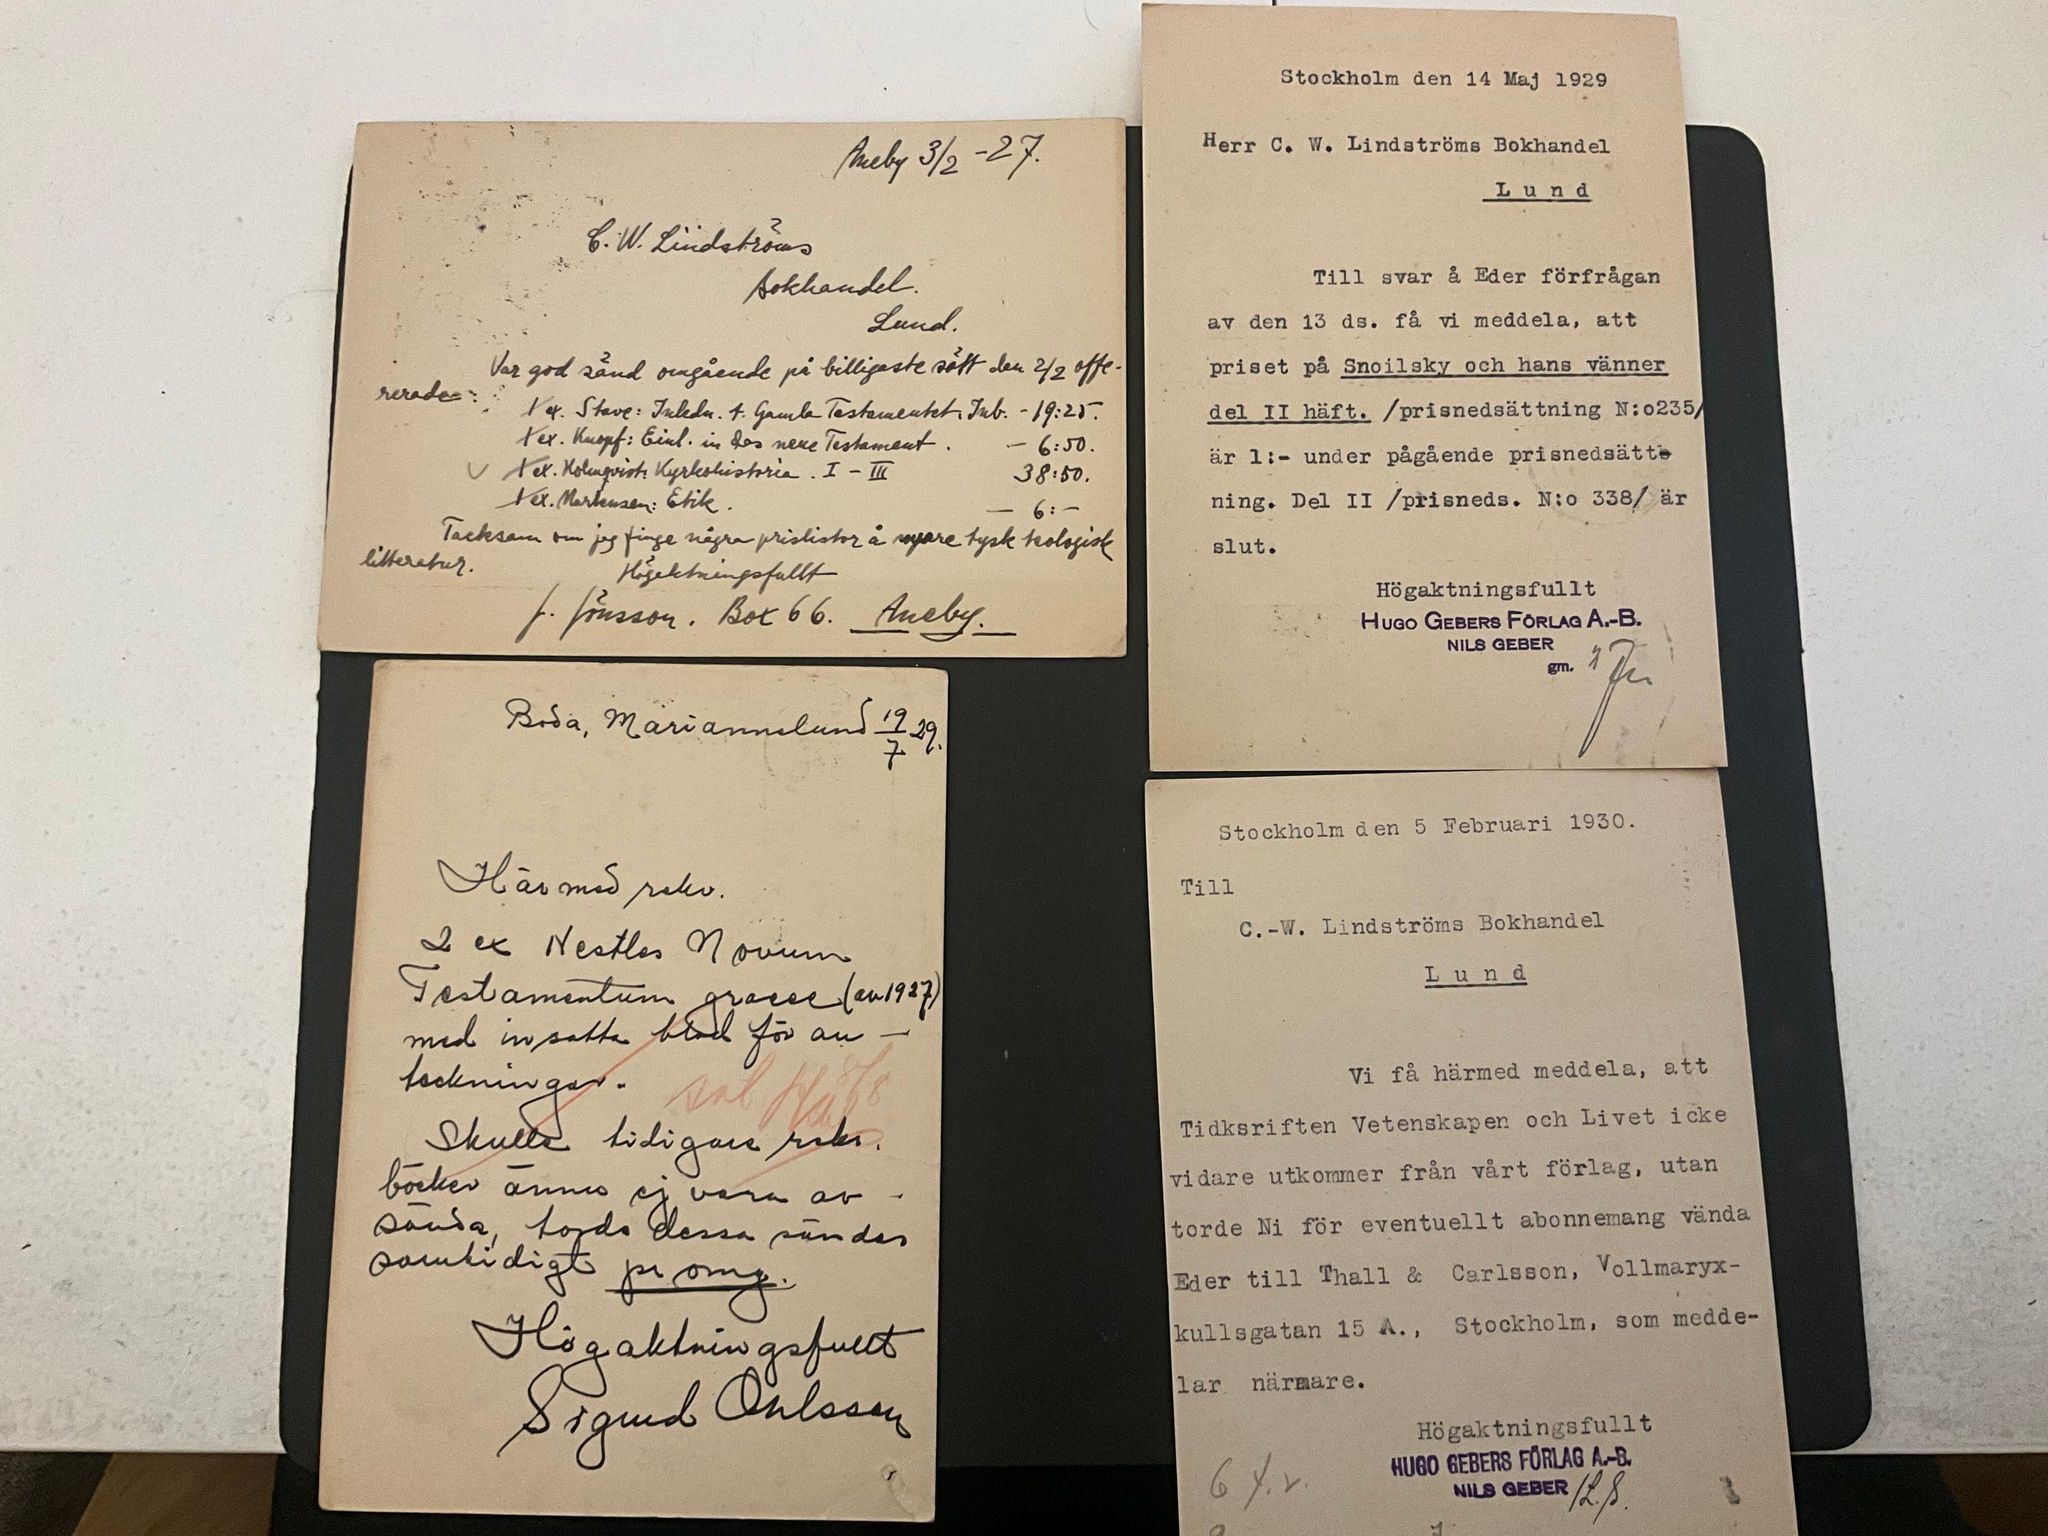 Aneby 3/2 -27.
C. W. Lindströms
Bokhandel.
Lund.
Var god sänd omgående på billigaste sätt den 2/2 offe-
rerade:
1 ex. Stave: Inledn. t. Gamla Testamentet. Inb. - 19:25.
1 ex. Knopf: Einl. in das neue Testament. - 6:50.
1 ex. Holmqvist: Kyrkohistoria. I - III 38:50.
1 ex. Martensen: Etik. - 6:-
Tacksam om jag finge några prislistor å nyare tysk teologisk
litteratur.
Högaktningsfullt
J. Jönsson. Box 66. Aneby.
Boda, Mariannelund 19/7 29.
Härmed rekv.
2 ex Nestles Novum
Testamentum graece (av 1927)
med insatta blad för an-
teckningar.
Skulle tidigare rekv.
böcker ännu ej vara av-
sända, torde dessa sändas
samtidigt pr omg.
Högaktningsfullt
Sigurd Ohlsson
Stockholm den 14 Maj 1929
Herr C. W. Lindströms Bokhandel
Lund
Till svar å Eder förfrågan
av den 13 ds. få vi meddela, att
priset på Snoilsky och hans vänner
del II häft. /prisnedsättning N:o235/
är 1:- under pågående prisnedsätt
ning. Del II /prisneds. N:o 338/ är
slut.
Högaktningsfullt
HUGO GEBERS FÖRLAG A.-B.
NILS GEBER
gm.
Stockholm den 5 Februari 1930.
Till
C.-W. Lindströms Bokhandel
Lund
Vi få härmed meddela, att
Tidksriften Vetenskapen och Livet icke
vidare utkommer från vårt förlag, utan
torde Ni för eventuellt abonnemang vända
Eder till Thall & Carlsson, Vollmaryx-
kullsgatan 15 A., Stockholm, som medde-
lar närmare.
Högaktningsfullt
HUGO GEBERS FÖRLAG A.-B.
NILS GEBER